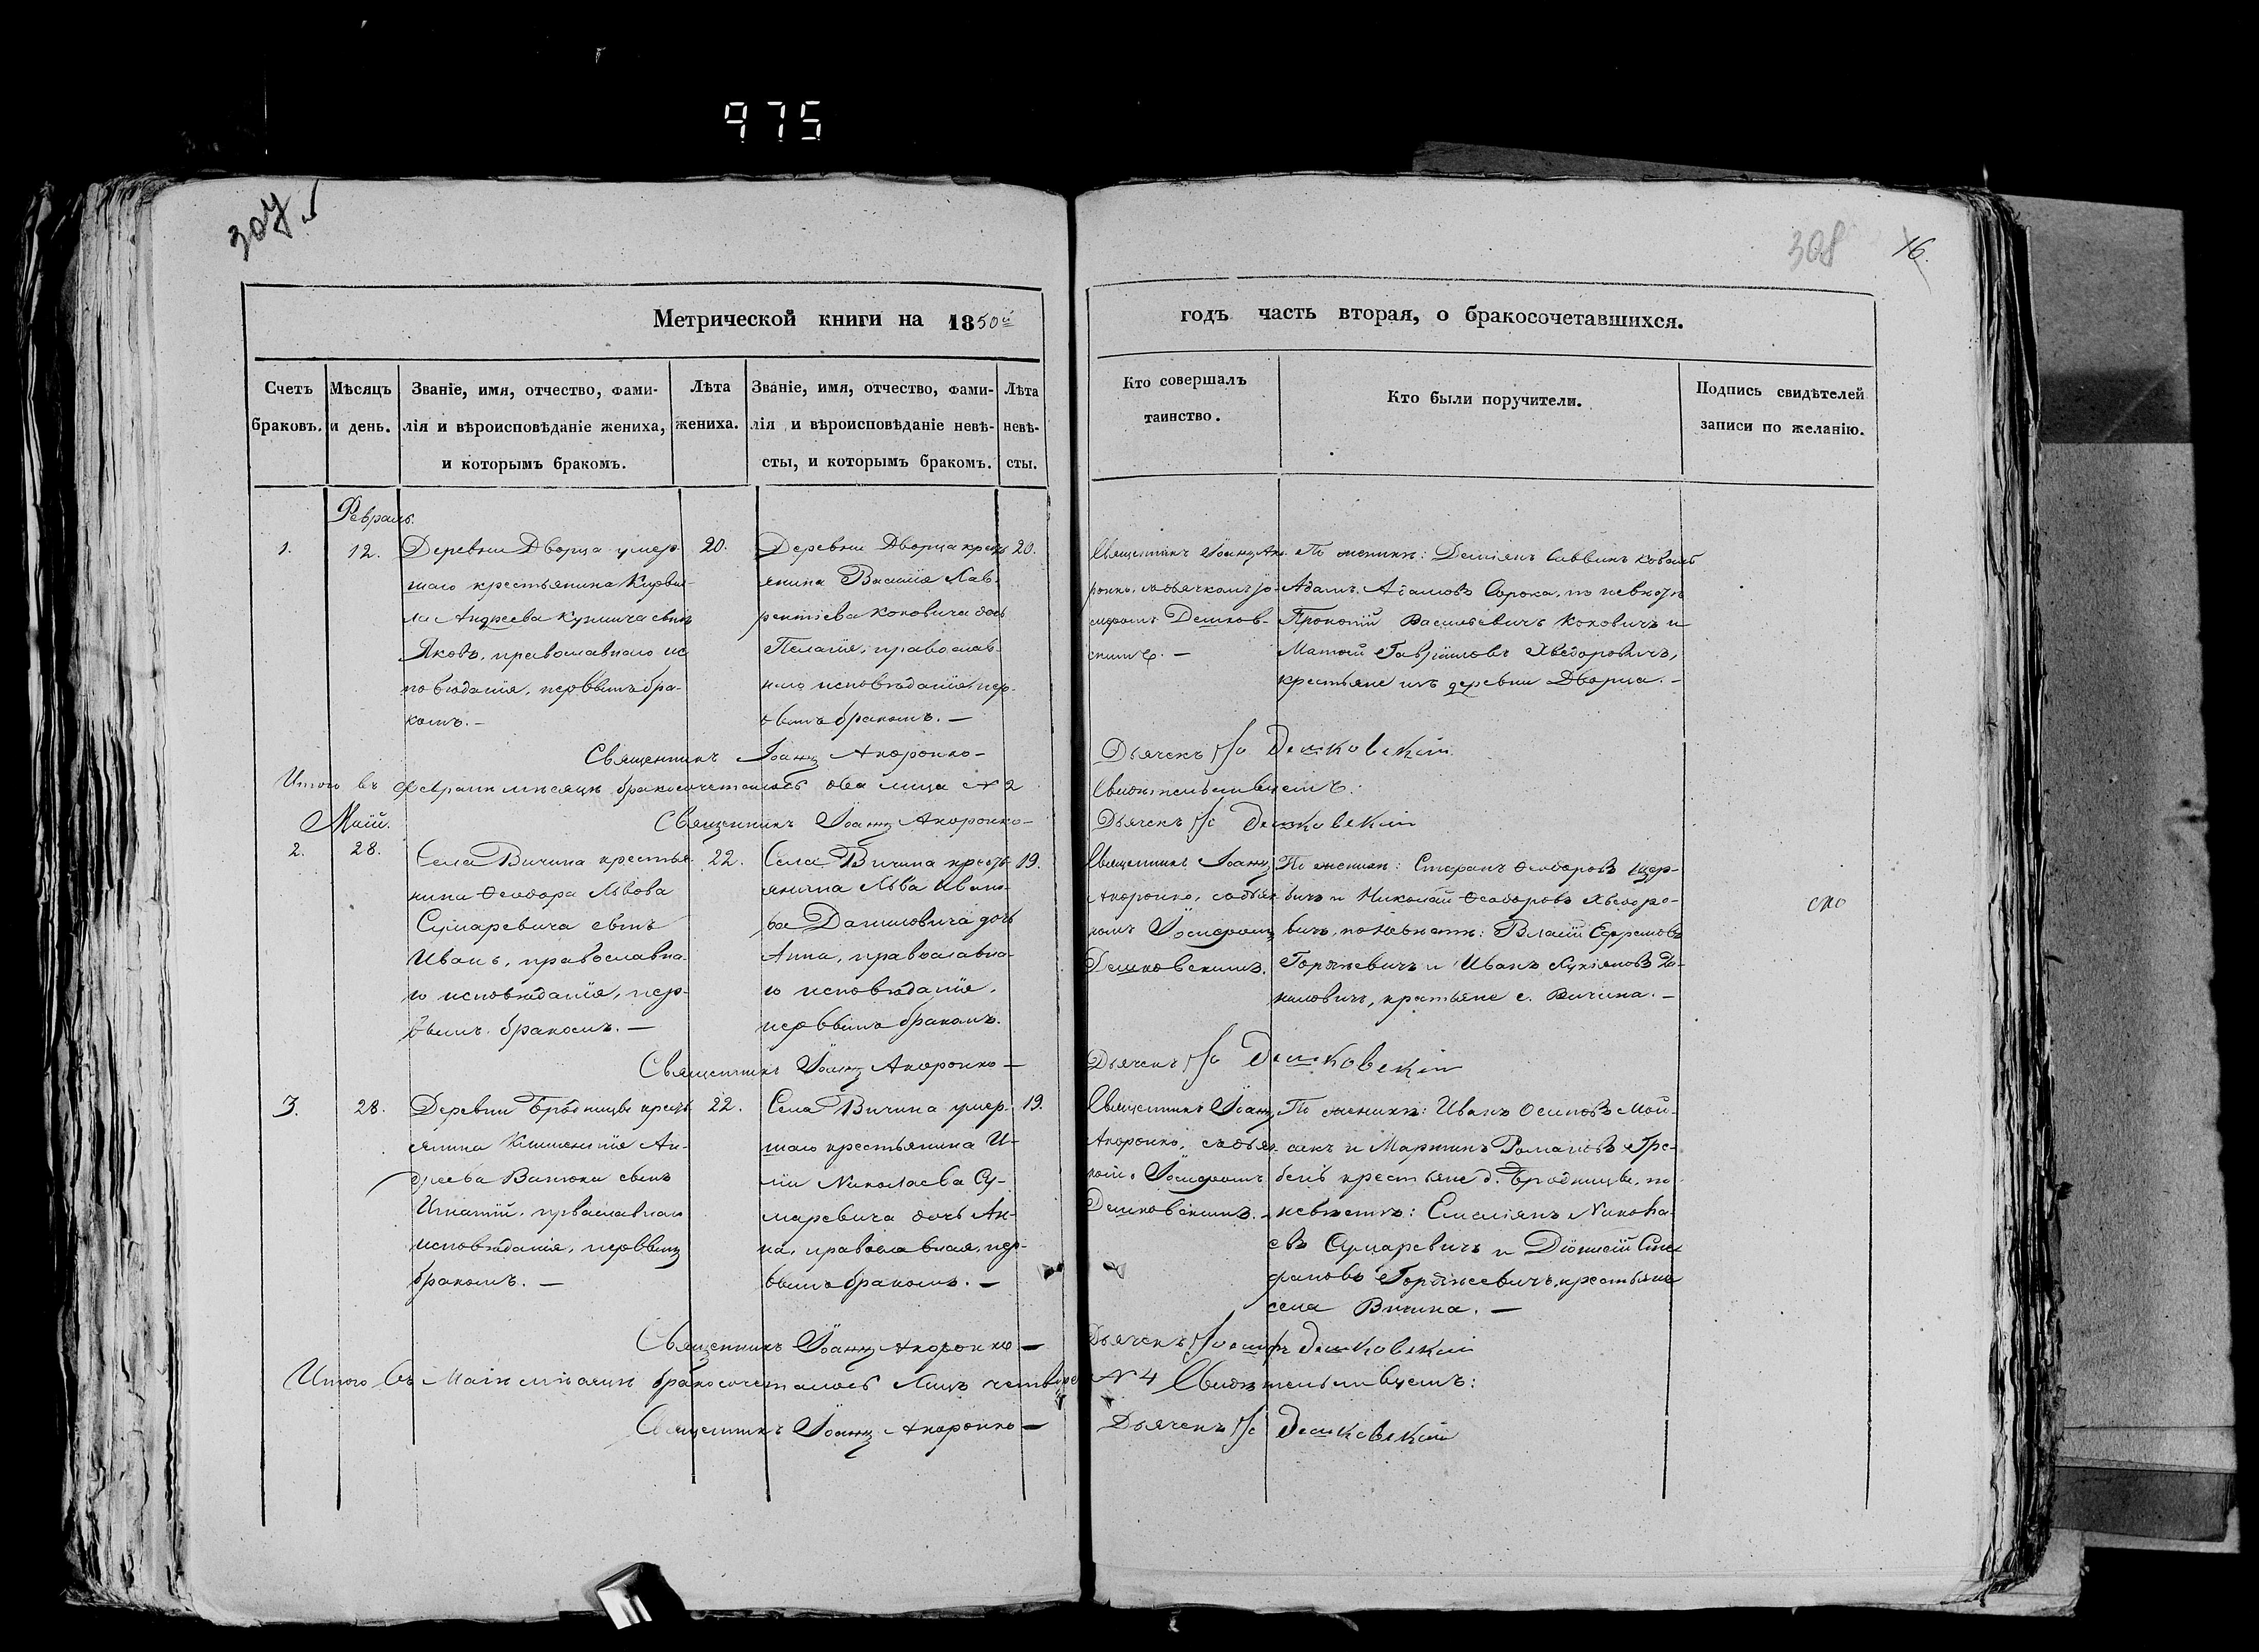 975
307
308 16.
Метрической книги на 1850й
годъ часть вторая, о бракосочетавшихся.
Счетъ браковъ.
Мѣсяцъ и день.
Званіе, имя, отчество, фами-
лія и вѣроисповѣданіе жениха,
и которымъ бракомъ.
Лѣта
жениха.
Званіе, имя, отчество, фами-
лія и вѣроисповѣданіе невѣ-
сты, и которымъ бракомъ.
Лѣта
невѣ-
сты.
Кто совершалъ
таинство.
Кто были поручители.
Подпись свидѣтелей
записи по желанію.
Февраль.
1.
12.
Деревни Дворца умер-
шаго крестьянина Кирил-
ла Андреева сынъ
Яковъ, православнаго ис
повѣданія, первымъ бра-
комъ. —
20.
Деревни Дворца кресть
янина Василія Лав-
рентіева Коковича дочь
Пелагія, православ-
наго исповѣданія, пер-
вымъ бракомъ. —
20.
Священникъ Іоаннъ Ако-
ронко, съ дьячкомъ Іо-
сифомъ Дешков-
скимъ. —
По женихѣ: Деміянъ Саввинъ Коваль
Адамъ Адамовъ Сорока, по невѣстѣ
Прокопій Васильевичъ Коковичъ и
Матѳей Гаврііловъ Хведоровичъ,
крестьяне изъ деревни Дворца. —
Священникъ Іоаннъ Акоронко —
Дьячекъ Іо Дешковскій
Итого въ Февралѣ мѣсяцѣ бракосочеталось два лица № 2
Свидѣтельствуемъ:
Май.
Священникъ Іоаннъ Акоронко —
Дьячекъ Іо Дешковскій
2.
28.
Села Вичина крестья
нина Ѳеодора Львова
Сумаревича сынъ
Иванъ, православна-
го исповѣданія, пер-
вымъ бракомъ. —
22.
Села Вичина кресть-
янина Льва Ивано-
ва Даниловича дочь
Анна, православна-
го исповѣданія,
первымъ бракомъ.
19.
Священникъ Іоаннъ
Акоронко, съ дьяч
комъ Іосифомъ
Дешковскимъ.
По женихѣ: Стефанъ Ѳеодоровъ Щер-
бичъ и Николай Ѳеодоровъ Хведоро-
вичъ, по невѣстѣ: Власій Ефремовъ
Горяжевичъ и Иванъ Лукіяновъ Да-
ниловичъ, крестьяне с. Вичина. —
Священникъ Іоаннъ Акоронко —
Дьячекъ Іо Дешковскій
3.
28.
Деревни Бродницы кресть
янина Климентія Ан-
дреева сынъ
Игнатій, православнаго
исповѣданія, первымъ
бракомъ. —
22.
Села Вичина умер-
шаго крестьянина И-
ліи Николаева Су-
маревича дочь Ан-
на, православная, пер-
вымъ бракомъ. —
19.
Священникъ Іоаннъ
Акоронко, съ дьяч-
комъ Іосифомъ
Дешковскимъ. —
По женихѣ: Иванъ Осиповъ Мой-
сакъ и Мартинъ Романовъ Гре-
бень крестьяне д. Бродницы, по
невѣстѣ: Емеліянъ Никола-
евъ Сумаревичъ и Діонисій Сте
фановъ Горяжевичъ, крестьяне
села Вичина. —
Священникъ Іоаннъ Акоронко —
Дьячекъ Іосифъ Дешковскій
Итого въ Маѣ мѣсяцѣ бракосочеталось лицъ четверо № 4 Свидѣтельствуемъ:
Священникъ Іоаннъ Акоронко —
Дьячекъ Іо Дешковскій